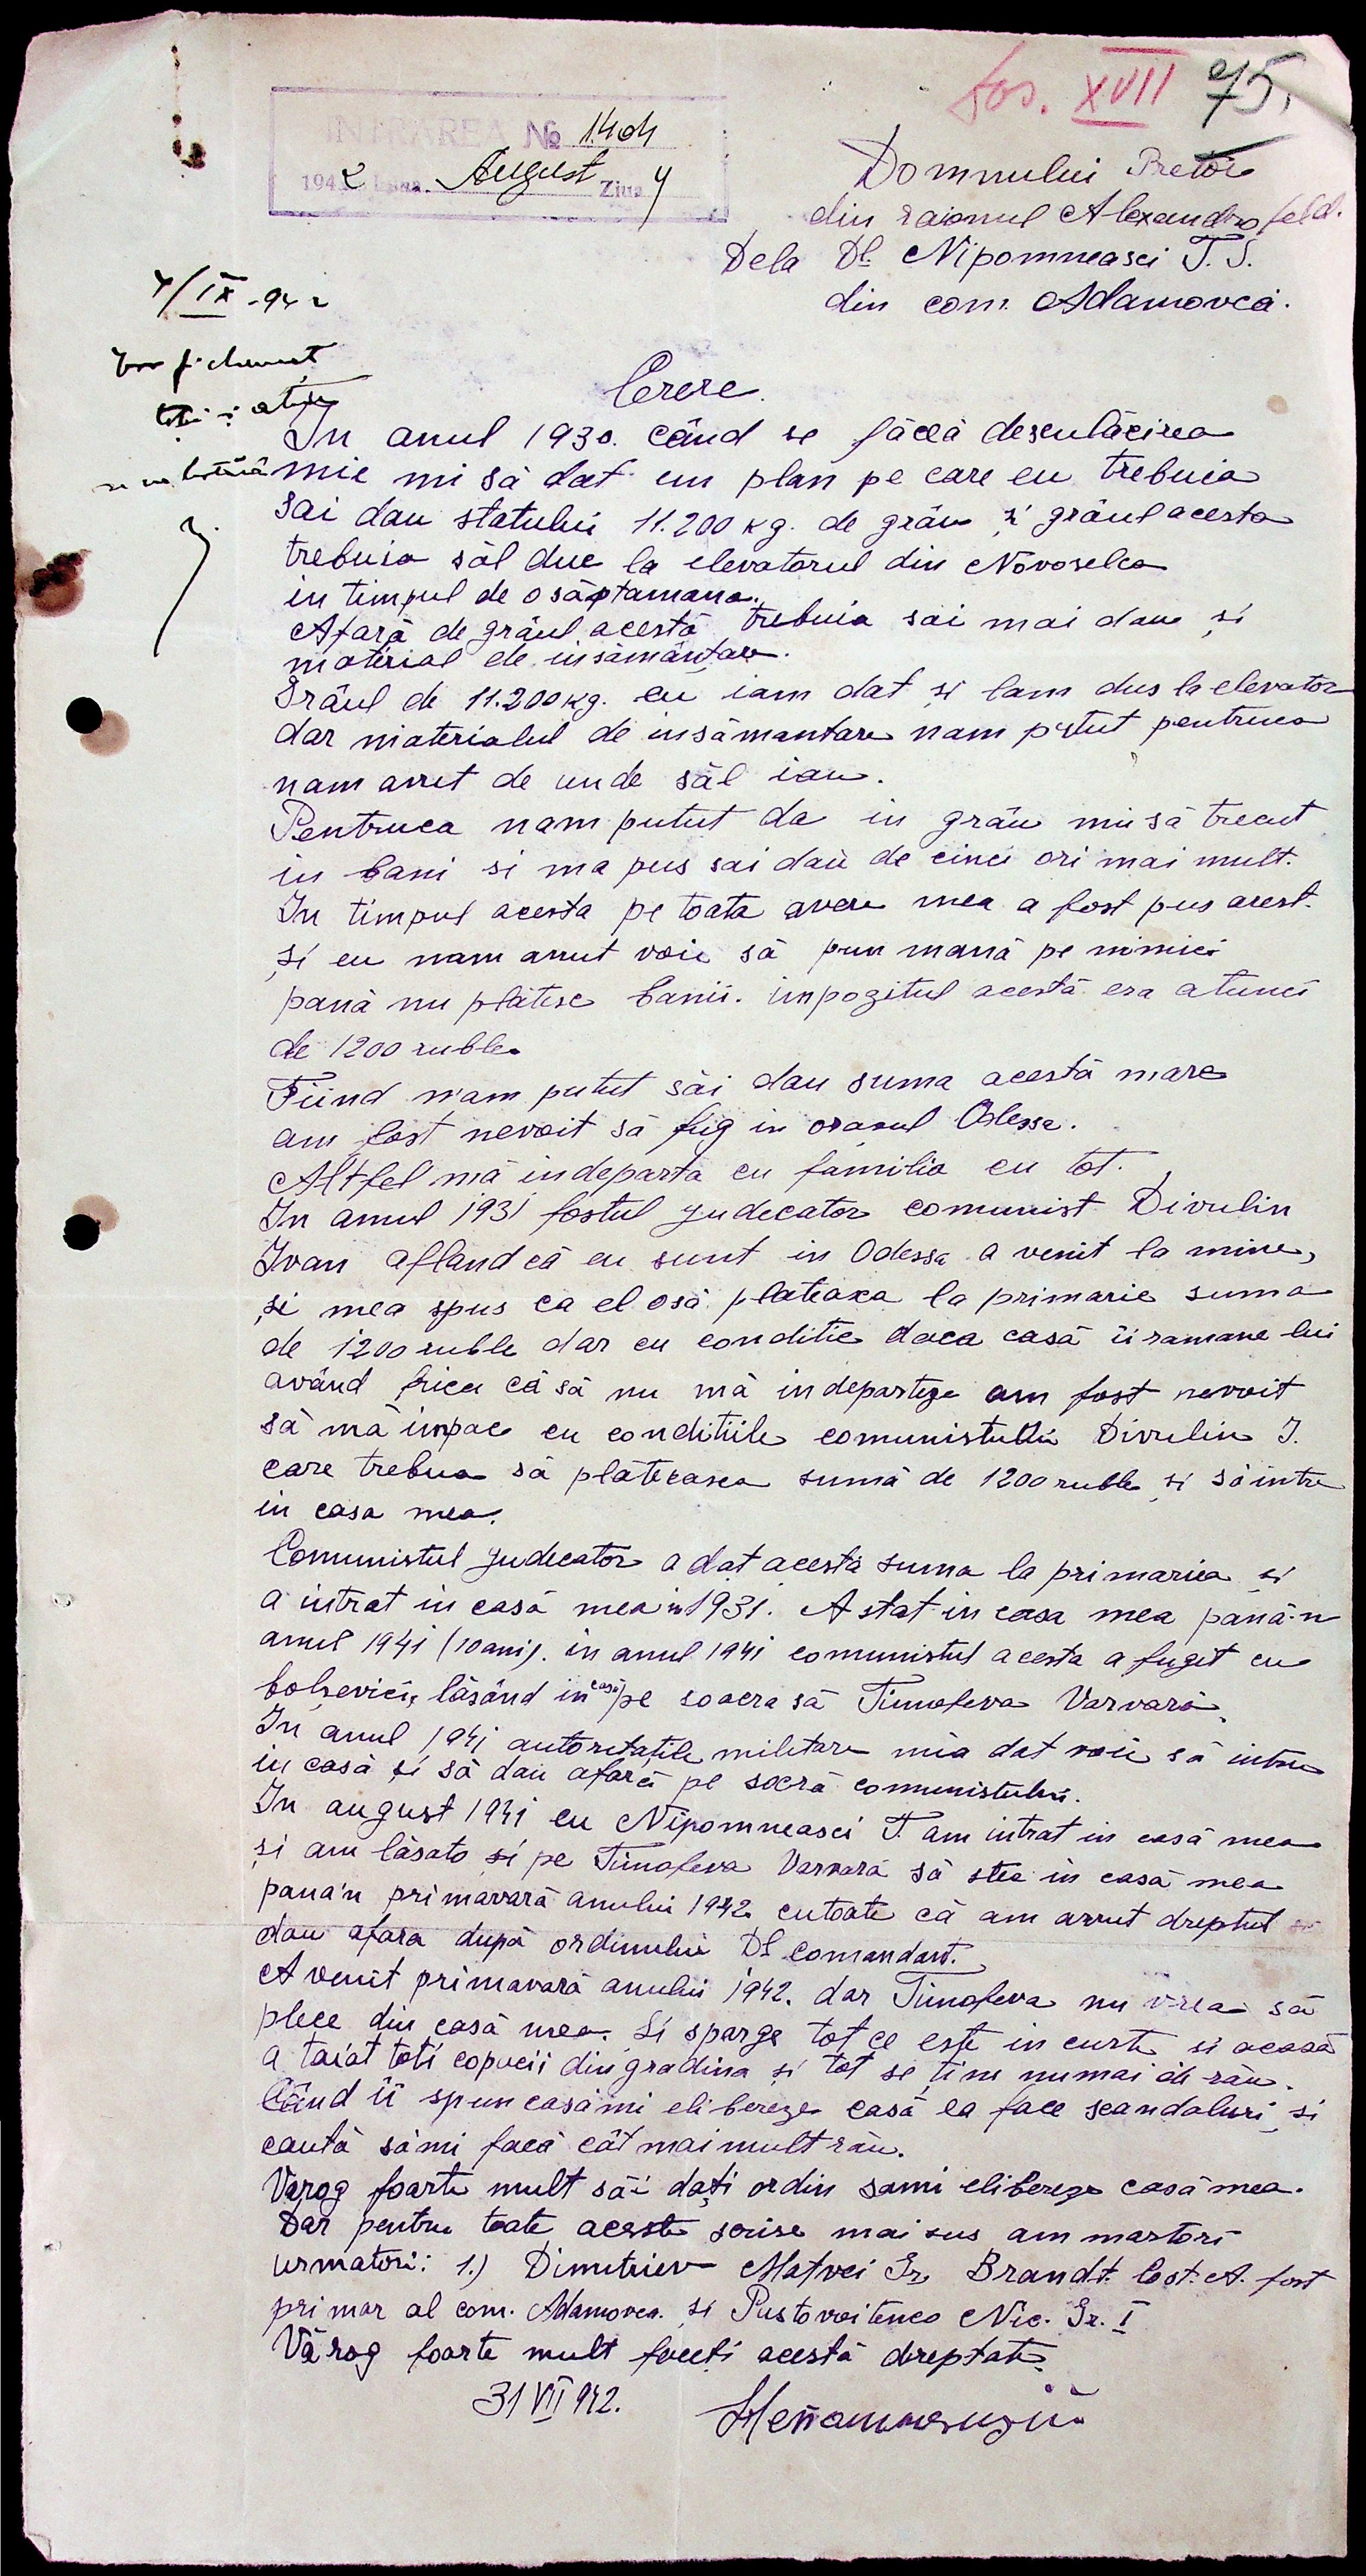 fos. XVII 75.
INTRAREA № 1404
1942 Luna August Ziua 4
Domnului Pretor
din raionul Alexandrofeld.
Dela Dl. Nipomneasci T. S.
din com. Adamovca.
4/IX-942
Cerere.
In anul 1930. când se făcea desculăcirea
mie mi să dat un plan pe care eu trebuia
sai dau statului 11.200 kg. de grâu și grâul acesta
trebuia săl duc la elevatorul din Novoselca
in timpul de o săptamana.
Afară de grâul acestă trebuia sai mai dau și
material de insămânțare.
Grâul de 11.200 kg. eu iam dat și lam dus la elevator
dar materialul de insămantare nam putut pentruca
nam avut de unde săl iau.
Pentruca nam putut da in grâu misă trecut
in bani si ma pus sai dau de cinci ori mai mult.
In timpul acesta pe toata avere mea a fost pus arest.
și eu nam avut voie să pun mană pe nimici
pană nu plătesc banii. impozitul acestă era atunci
de 1200 ruble.
Fiind n'am putut săi dau suma acestă mare
am fost nevoit să fug in orasul Odessa.
Altfel mă indeparta cu familia cu tot.
In anul 1931 fostul judecator comunist Divulin
Ivan afland că eu sunt in Odessa a venit la mine,
și mea spus ca el osă plateaxa la primarie suma
de 1200 ruble dar cu conditie daca casă ii ramane lui
având frica că să nu mă indeparteze am fost nevoit
să mă impac cu conditiile comunistului Divulin I.
care trebua să plătecasca sumă de 1200 ruble și să intre
in casa mea.
Comunistul judecator a dat acestă suma la primariea și
a intrat in casă mea in 1931. A stat in casa mea pană-n
anul 1941 (10 ani). in anul 1941 comunistul acesta a fugit cu
bolșevici, lăsând in casă pe soacra să Timofeva Varvara.
In anul 1941 autoretațile militare mia dat voie să intru
in casă și să dau afară pe socră comunistului.
In august 1941 eu Nipomneasci T. am intrat in casă mea
și am lăsato și pe Timofeva Varvară să stea in casă mea
pana'n primavară anului 1942 cutoate că am avut dreptul să
dau afara după ordinului Dl comandant.
A venit primavară anului 1942. dar Timofeva nu vrea să
plece din casă mea. Și sparge tot ce este in curte si acasă
a taiat toti copucii din gradina și tot se tine numai de rău.
Când îi spun casămi elibereze casă ea face scandaluri și
caută sămi facă cât mai mult rău.
Varog foarte mult săi dați ordin sami elibereze casă mea.
Dar pentru toate aceste scrise mai sus am martori
urmatori: 1.) Dimitriev Matvei Gr, Brandt. Cost. A. fost
primar al com. Adamovca. și Pustovoitenco Nic. Gr. I
Vă rog foarte mult faceți acestă dreptate.
31 VII 942.